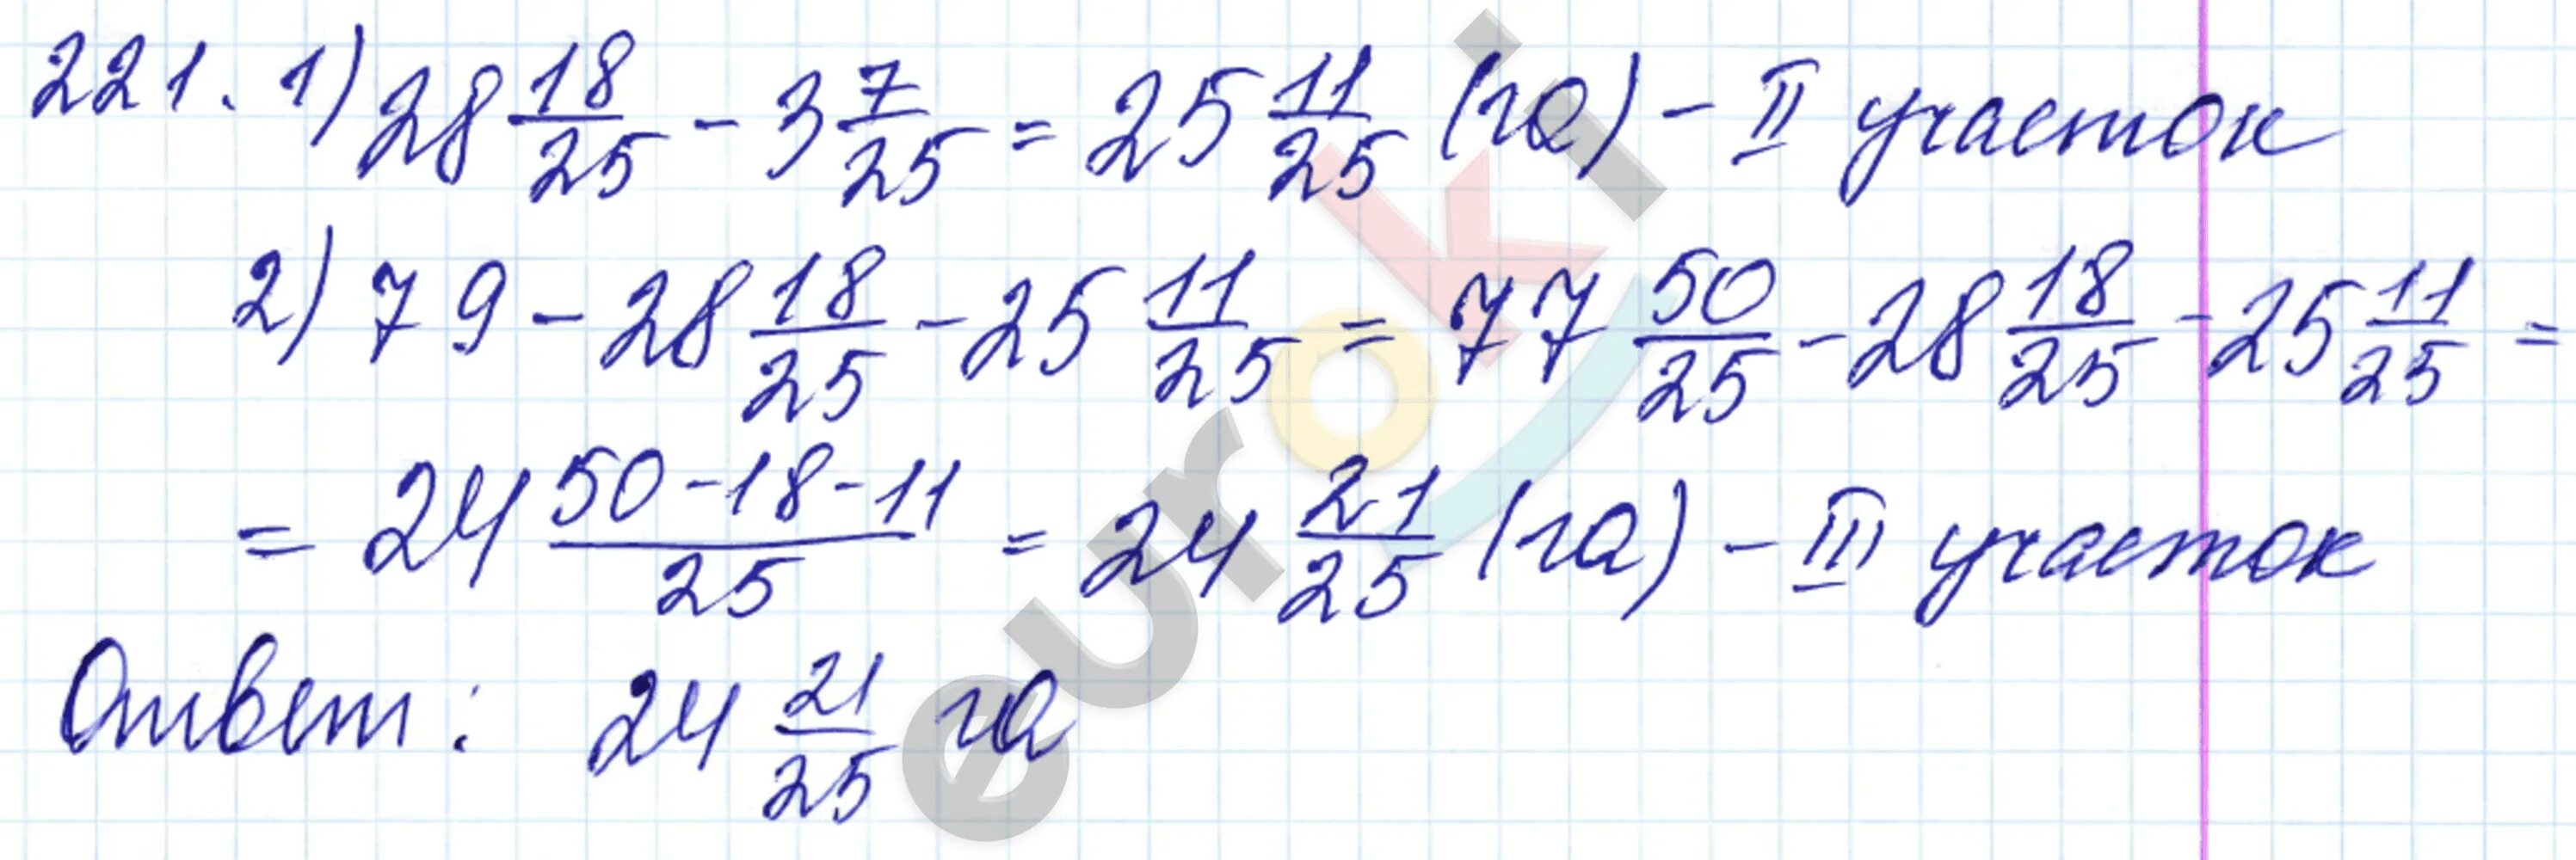 221. 1) 28 18/25 - 3 7/25 = 25 11/25 (га) - II участок
2) 79 - 28 18/25 - 25 11/25 = 77 50/25 - 28 18/25 - 25 11/25 =
= 24 (50-18-11)/25 = 24 21/25 (га) - III участок
Ответ: 24 21/25 га
euroki